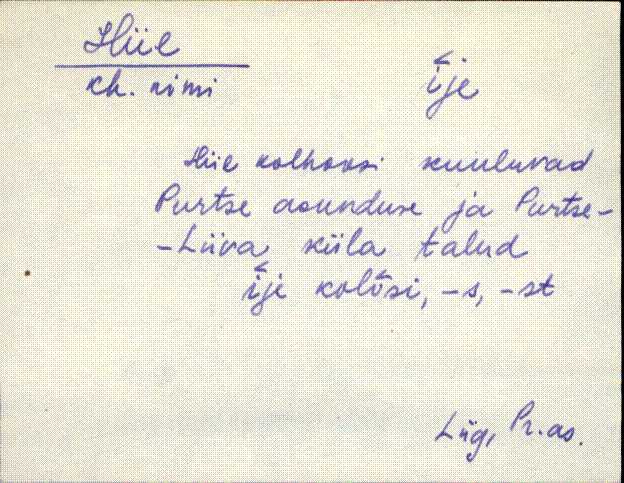 Hiie
kh. nimi
ĭje
Hiie kolhoosi kuuluvad
Purtse asunduse ja Purtse-
-Liiva küla talud
ĭje kolŏsi, -s, -st
Lüg, Pr. as.